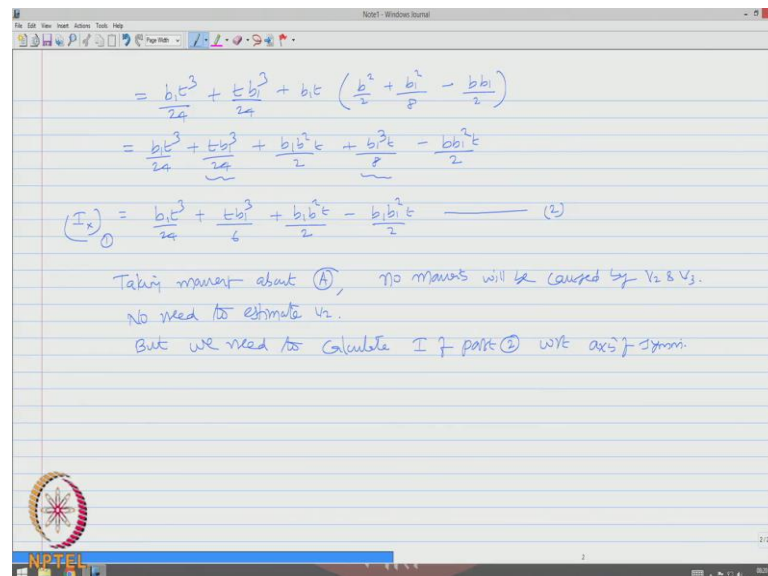 Note1 - Windows Journal
File Edit View Insert Actions Tools Help
Page Width
= b₁t³/24 + tb₁³/24 + b₁t (b²/2 + b₁²/8 - bb₁/2)
= b₁t³/24 + tb₁³/24 + b₁b²t/2 + b₁³t/8 - bb₁²t/2
(Ix)① = b₁t³/24 + tb₁³/6 + b₁b²t/2 - b₁b₁²t/2 ——— (2)
Taking moment about Ⓐ, no moments will be caused by V2 & V3.
No need to estimate V2.
But we need to calculate I of part ② wrt axis of symm.
NPTEL
2
2/2